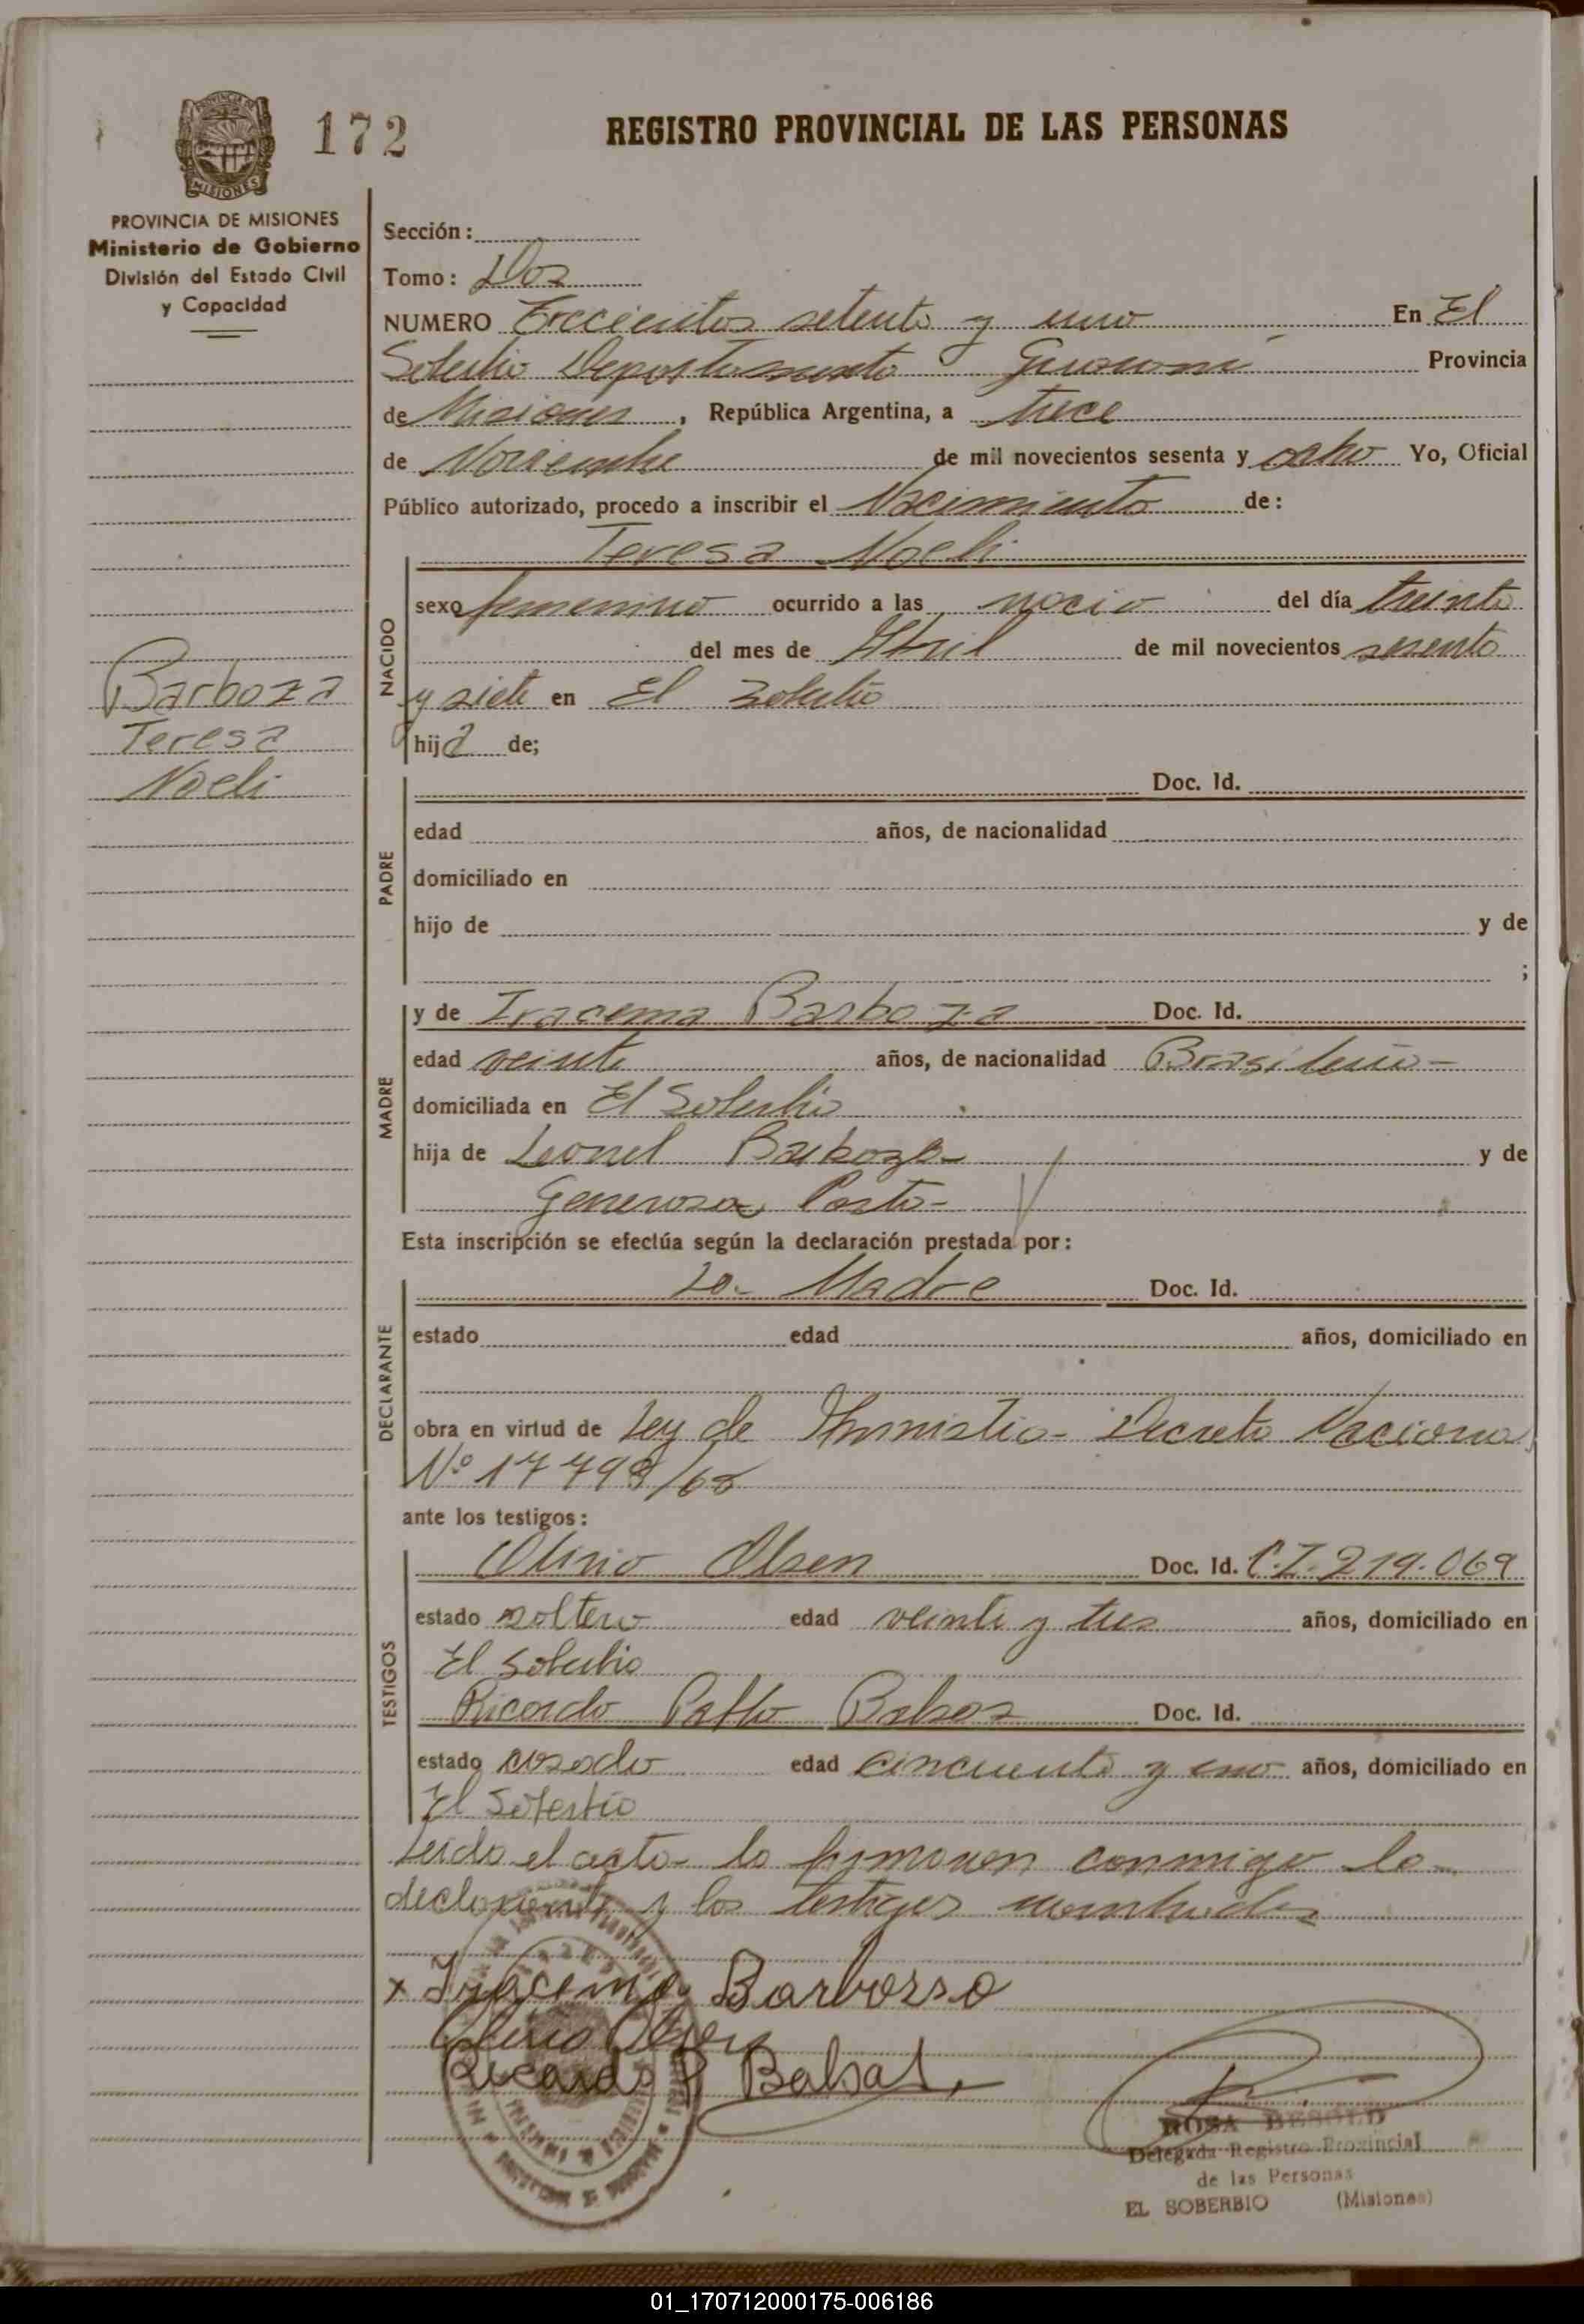 172
REGISTRO PROVINCIAL DE LAS PERSONAS
PROVINCIA DE MISIONES
MISIONES
PROVINCIA DE MISIONES
Ministerio de Gobierno
División del Estado Civil
y Capacidad
Barboza
Teresa
Noeli
Sección:
Tomo: Dos
NUMERO Trecientos setenta y uno En El
Soberbio Departamento Guarani Provincia
de Misiones, República Argentina, a trece
de Noviembre de mil novecientos sesenta y ocho Yo, Oficial
Público autorizado, procedo a inscribir el Nacimiento de:
Teresa Noeli
NACIDO
sexo femenino ocurrido a las nacio del día treinta
del mes de Abril de mil novecientos sesenta
y siete en El Soberbio
hija de;
PADRE
Doc. Id.
edad años, de nacionalidad
domiciliado en
hijo de y de
;
MADRE
y de Iracema Barboza Doc. Id.
edad veinte años, de nacionalidad Brasileña-
domiciliada en El Soberbio
hija de Leonel Barboza- y de
Generosa Porto-
Esta inscripción se efectúa según la declaración prestada por:
DECLARANTE
La- Madre Doc. Id.
estado edad años, domiciliado en
obra en virtud de Ley de Amnistia- Decreto Nacional
Nº 17798/68
ante los testigos:
TESTIGOS
Olirio Olsen Doc. Id. C.I. 219.069
estado soltero edad veinte y tres años, domiciliado en
El Soberbio
Ricardo Pablo Doc. Id.
estado casado edad cincuenta y uno años, domiciliado en
El Soberbio
Leida el acta- la firmaron conmigo la
declarante y los testigos nombrados
x Iracema Barbosso
Olirio Olsen
Ricardo P Balsat
ROSA BESOLD
Delegada Registro Provincial
de las Personas
EL SOBERBIO (Misiones)
01_170712000175-006186